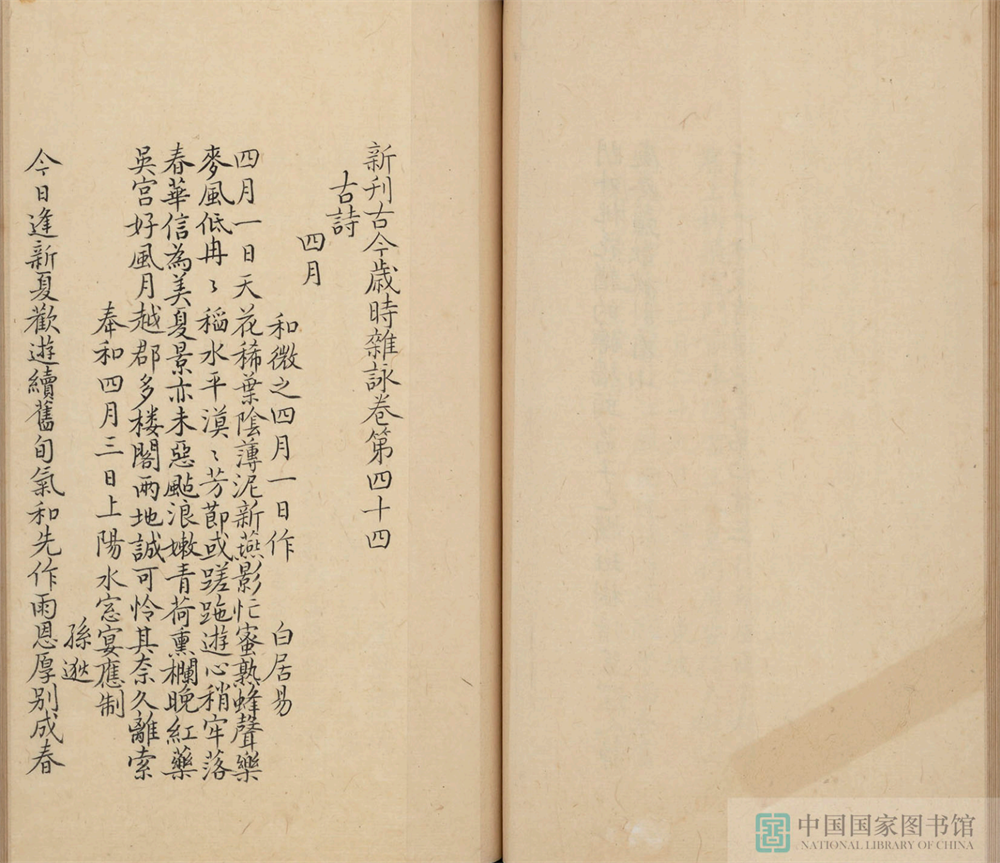 新刊古今歲時雜詠卷第四十四
古詩
四月
和微之四月一日作 白居易
四月一日天花稀葉陰薄泥新燕影忙蜜熟蜂聲樂
麥風低冉〻稻水平漠〻芳節或蹉跎遊心稍牢落
春華信為美夏景亦未惡颭浪嫩青荷熏欄晚紅藥
吳宮好風月越郡多樓閣兩地誠可怜其奈久離索
奉和四月三日上陽水窓宴應制
孫逖
今日逢新夏歡遊續舊旬氣和先作雨恩厚別成春
中国国家图书馆
NATIONAL LIBRARY OF CHINA